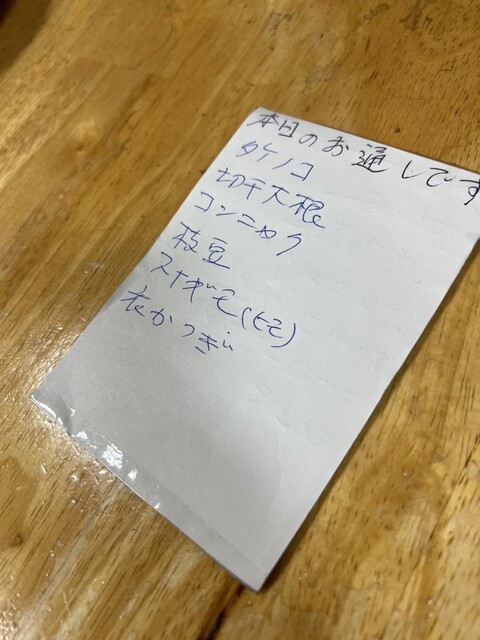 本日のお通しです
タケノコ
切干大根
コンニャク
枝豆
スナギモ(ヒモ)
衣かつぎ